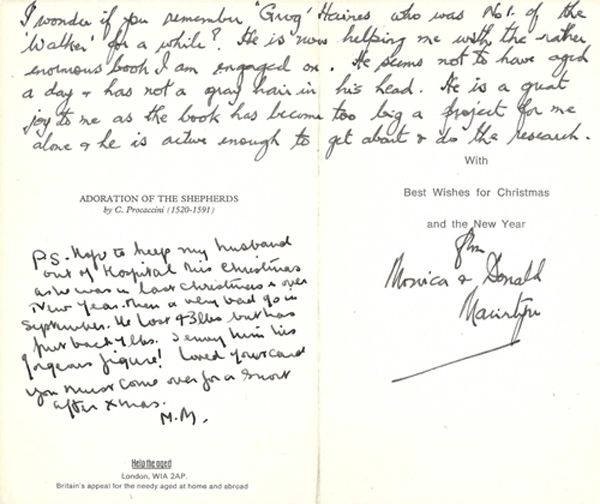 I wonder if you remember 'Grog' Haines who was No 1. of the
'Walker' for a while? He is now helping me with the rather
enormous book I am engaged on. He seems not to have aged
a day & has not a gray hair in his head. He is a great
joy to me as the book has become too big a project for me
alone & he is active enough to get about & do the research.
ADORATION OF THE SHEPHERDS
by C. Procaccini (1520-1591)
P.S. Hope to keep my husband
out of Hospital this Christmas
as he was in last Christmas & over
New Year. Then a very bad go in
September. He lost 43lbs but has
put back 7 lbs. I envy him his
gorgeous figure! Loved your card
you must come over for a snort
after Xmas.
M.M.
Help the aged
London, W1A 2AP.
Britain's appeal for the needy aged at home and abroad
With
Best Wishes for Christmas
and the New Year
from
Monica & Donald
Macintyre